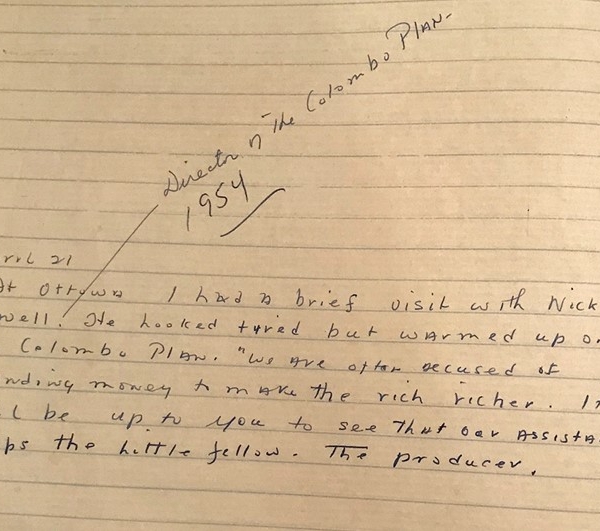 Director of The Colombo PLAN-
1954
rrl 21
At Ottawa I had a brief visit with Nick
well. He looked tyred but warmed up on
Colombo Plan. "We are often accused of
nding money to make the rich richer. I
l be up to you to see that our assista
ps the little fellow. The producer.